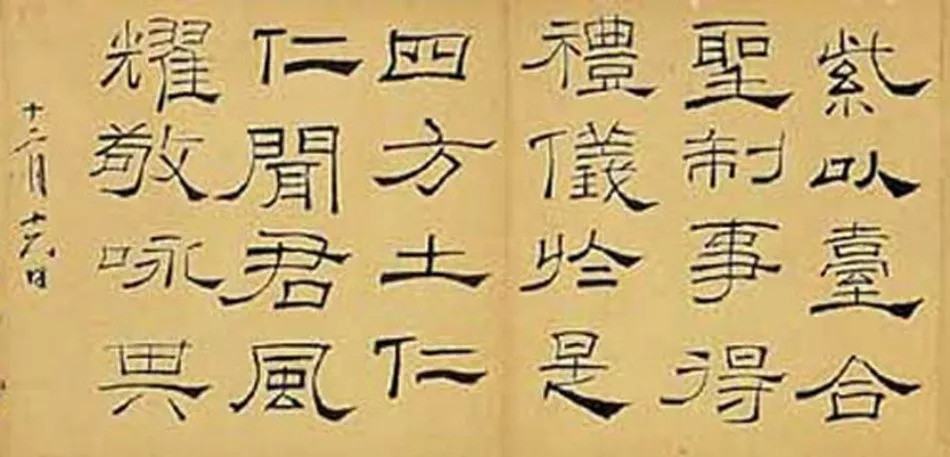 紫以臺合
聖制事得
禮儀於是
四方土仁
仁聞君風
耀敬咏典
十二月十六日